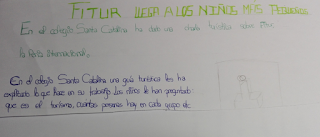 FITUR LLEGA A LOS NIÑOS MÁS PEQUEÑOS
En el colegio Santa Catalina ha dado una charla turística sobre fitur
la Feria Internacional.
En el colegio Santa Catalina una guía turística les ha
explicado lo que hace en su trabajo. Los niños le han preguntado:
que es el turismo, cuántas personas hay en cada grupo etc